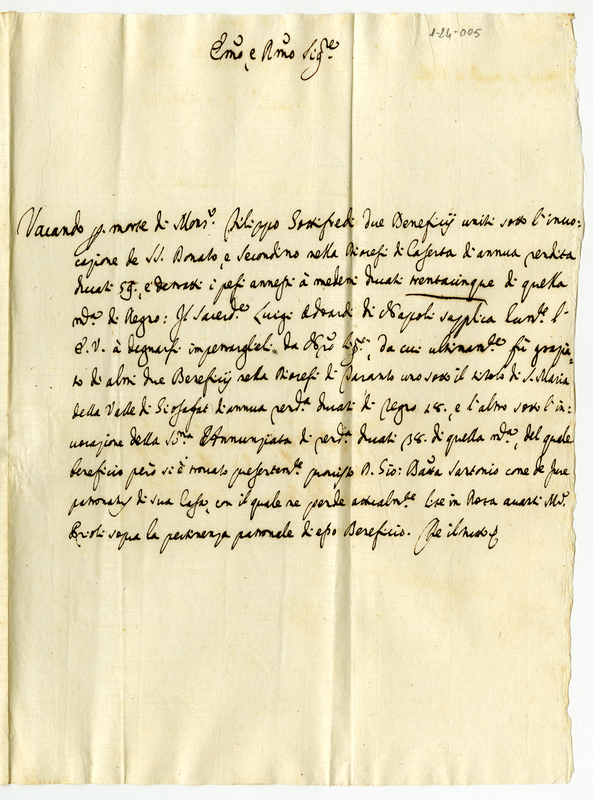 1-24-005
Em̃o, e Rm̃o Sig.re
Vacando p. morte di Mons.r Filippo Sottifredi due Beneficij uniti sotto l'invo-
cazione de SS. Donato, e Secondino nella Diocesi di Caserta di annua rendita
ducati 59. e detratti i pesi annessi à medemi ducati trentacinque di quella
m.ta di Regno: Il Sacerd.e Luigi Odoardi di Napoli supplica l'
E. V. à degnarsi impetrarglieli da N̄ro Sig.re, da cui ultimam.te fù grazia-
to di altri due Beneficij nella Diocesi di Taranto uno sotto il titolo di S. Maria
della Valle di Giosafat di annua rend.ta ducati di Regno 48. e l'altro sotto l'in-
vocazione della SS.ma Annunziata di rend.ta ducati 38. di quella m.ta, del quale
beneficio però si è trovato provisto D. Gio: Batta Sartonio come de Jure
patronatus di sua Casa, con il quale ne pende attualm.te lite in Rota avanti M.r
sopra la pertinenza patronale di esso Beneficio. Che il tutto